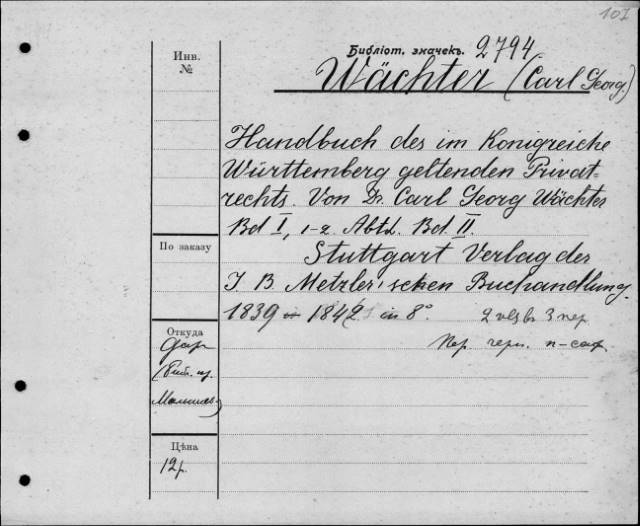 107
Инв.
№
Библіот. значекъ. 2794
Wächter (Carl Georg.)
Handbuch des im Konigreiche
Württemberg geltenden Privat=
rechts. Von Dr. Carl Georg Wächter
Bd I, 1-2 Abth. Bd II.
По заказу
Stuttgart Verlag der
J B Metzler'schen Buchandlung.
1839 in 1842 in 8°
2 vls въ 3 пер
Откуда
Даръ
Пер. черн. п-саф
Цѣна
12р.